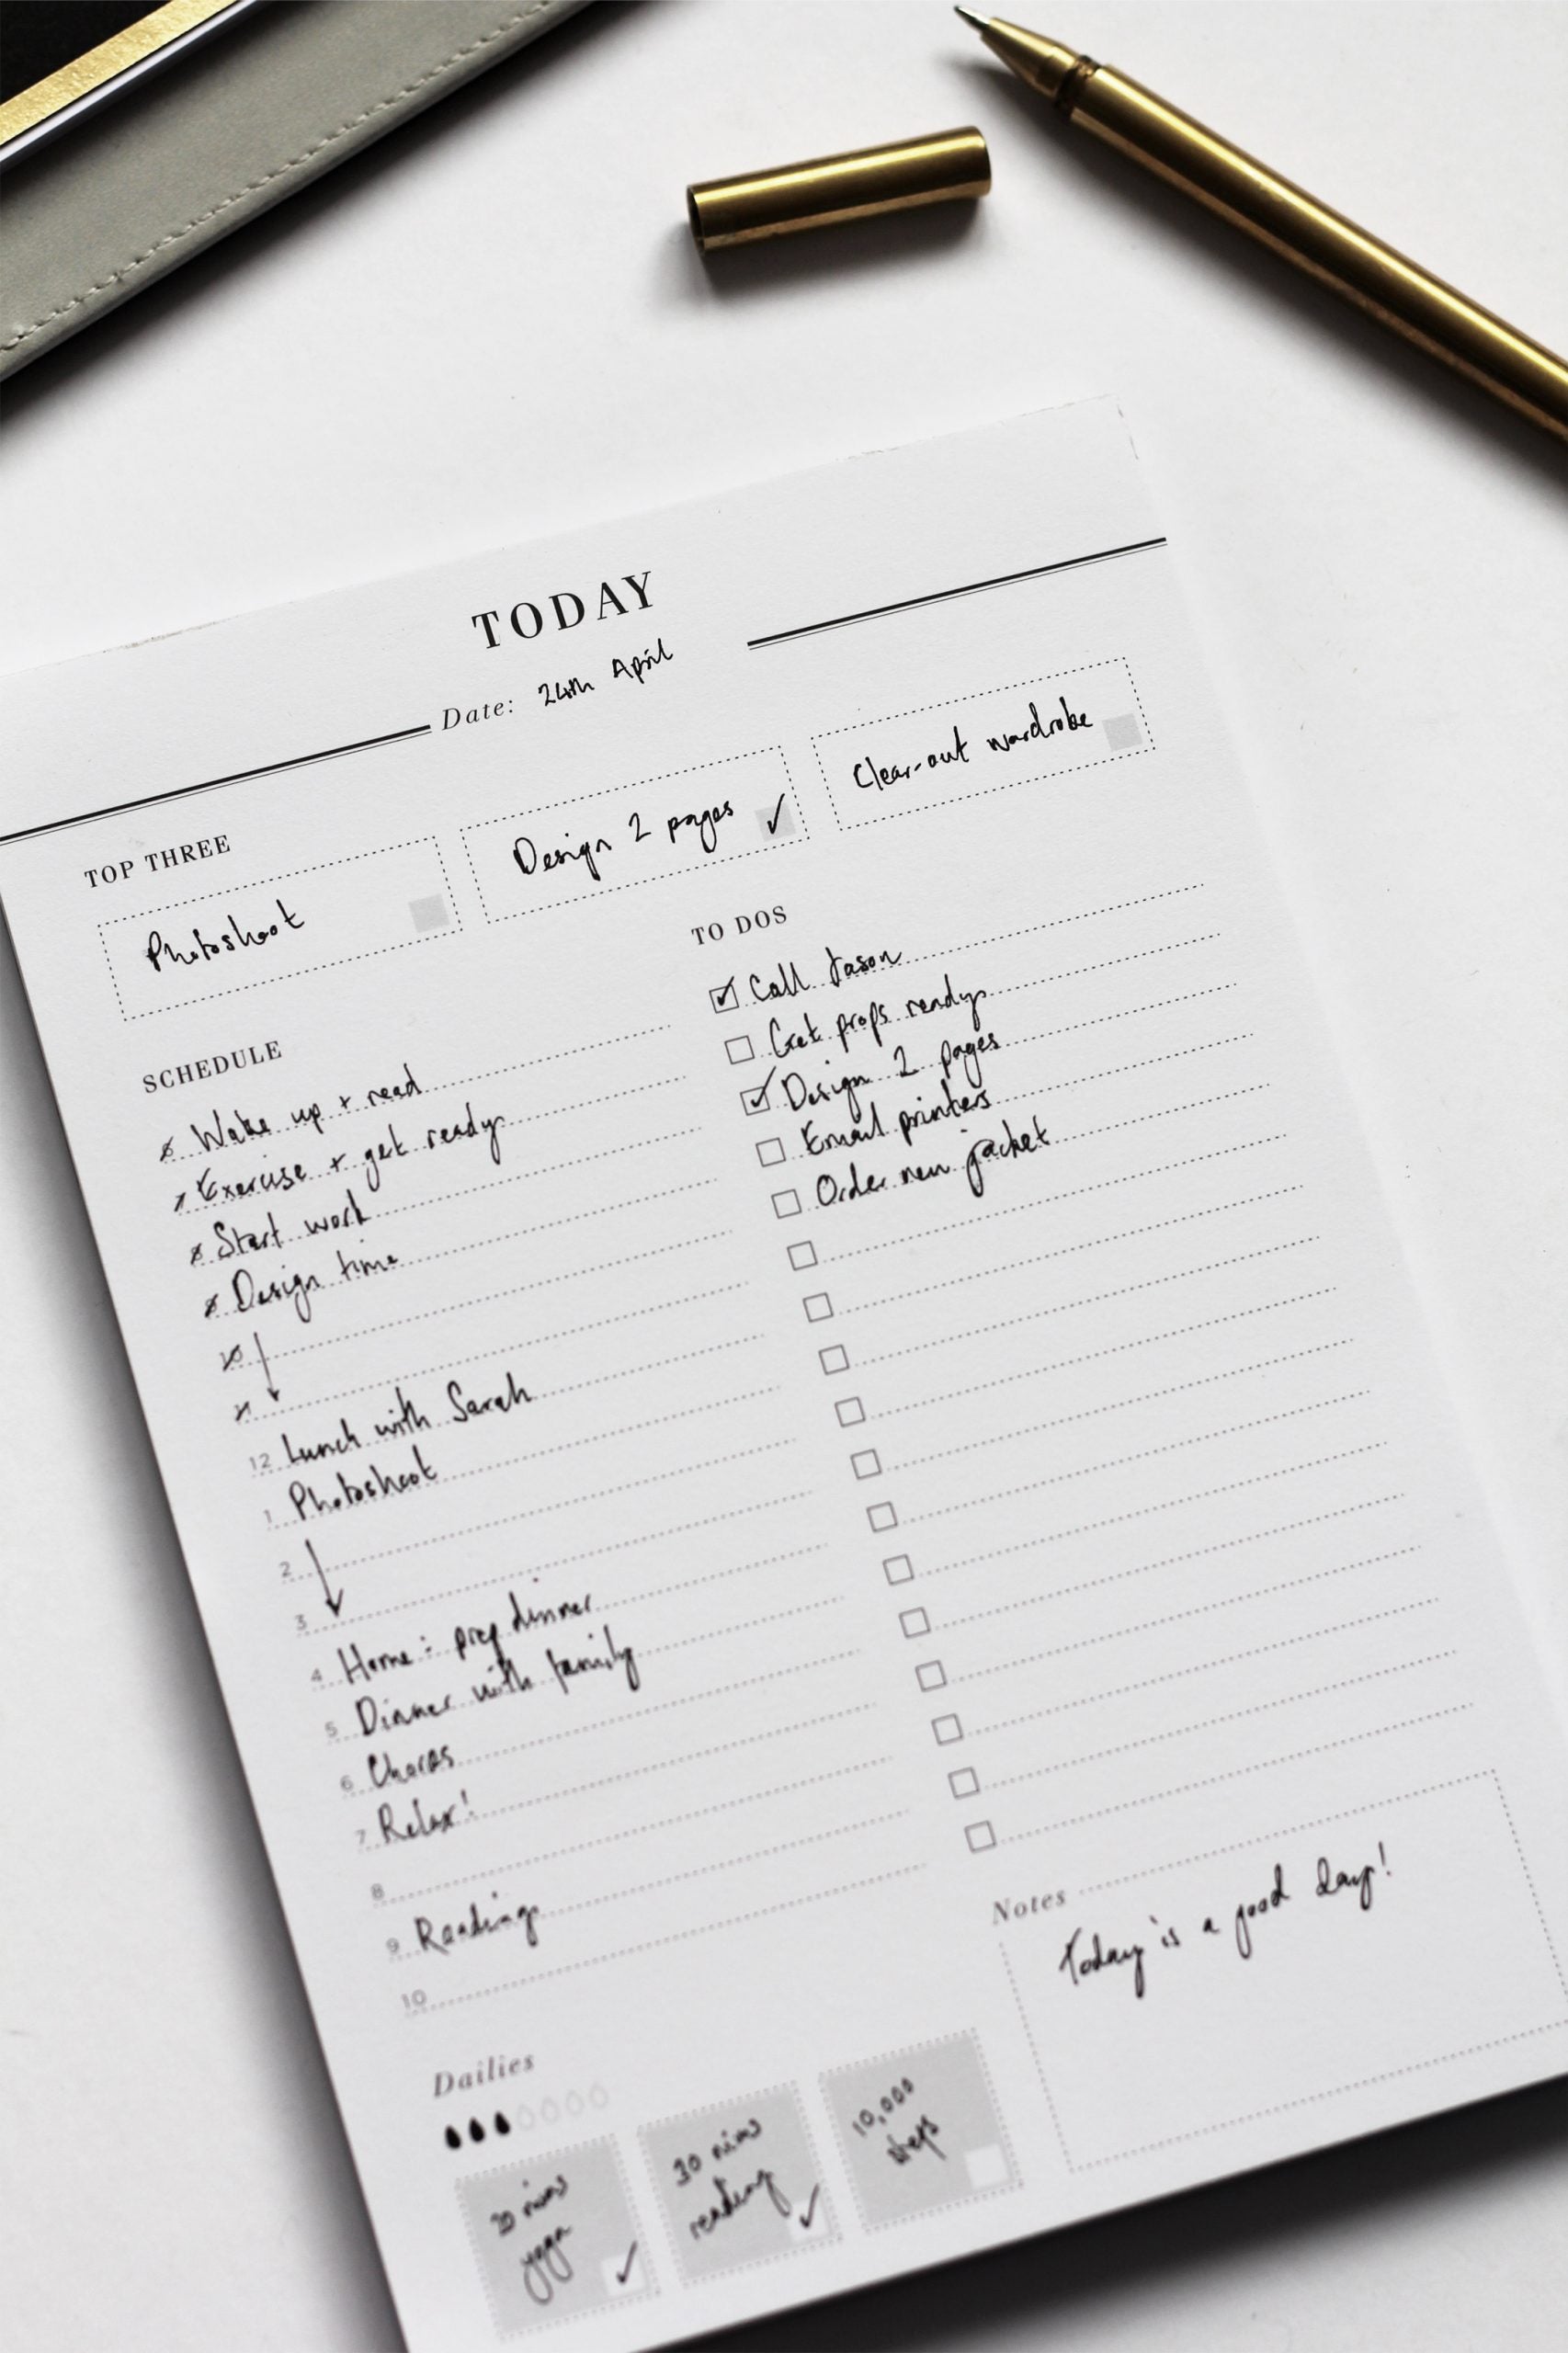 TODAY
Date: 24th April
TOP THREE
Photoshoot
Design 2 pages
Clear-out wardrobe
SCHEDULE
6 Wake up + read
7 Exercise + get ready
8 Start work
9 Design time
10
11
12 Lunch with Sarah
1 Photoshoot
2
3
4 Home: prep dinner
5 Dinner with family
6 Chores
7 Relax!
8
9 Reading
10
TO DOS
Call Jason
Get props ready
Design 2 pages
Email printers
Order new jacket
Notes
Today is a good day!
Dailies
mins
yoga
30 mins
reading
10,000
steps